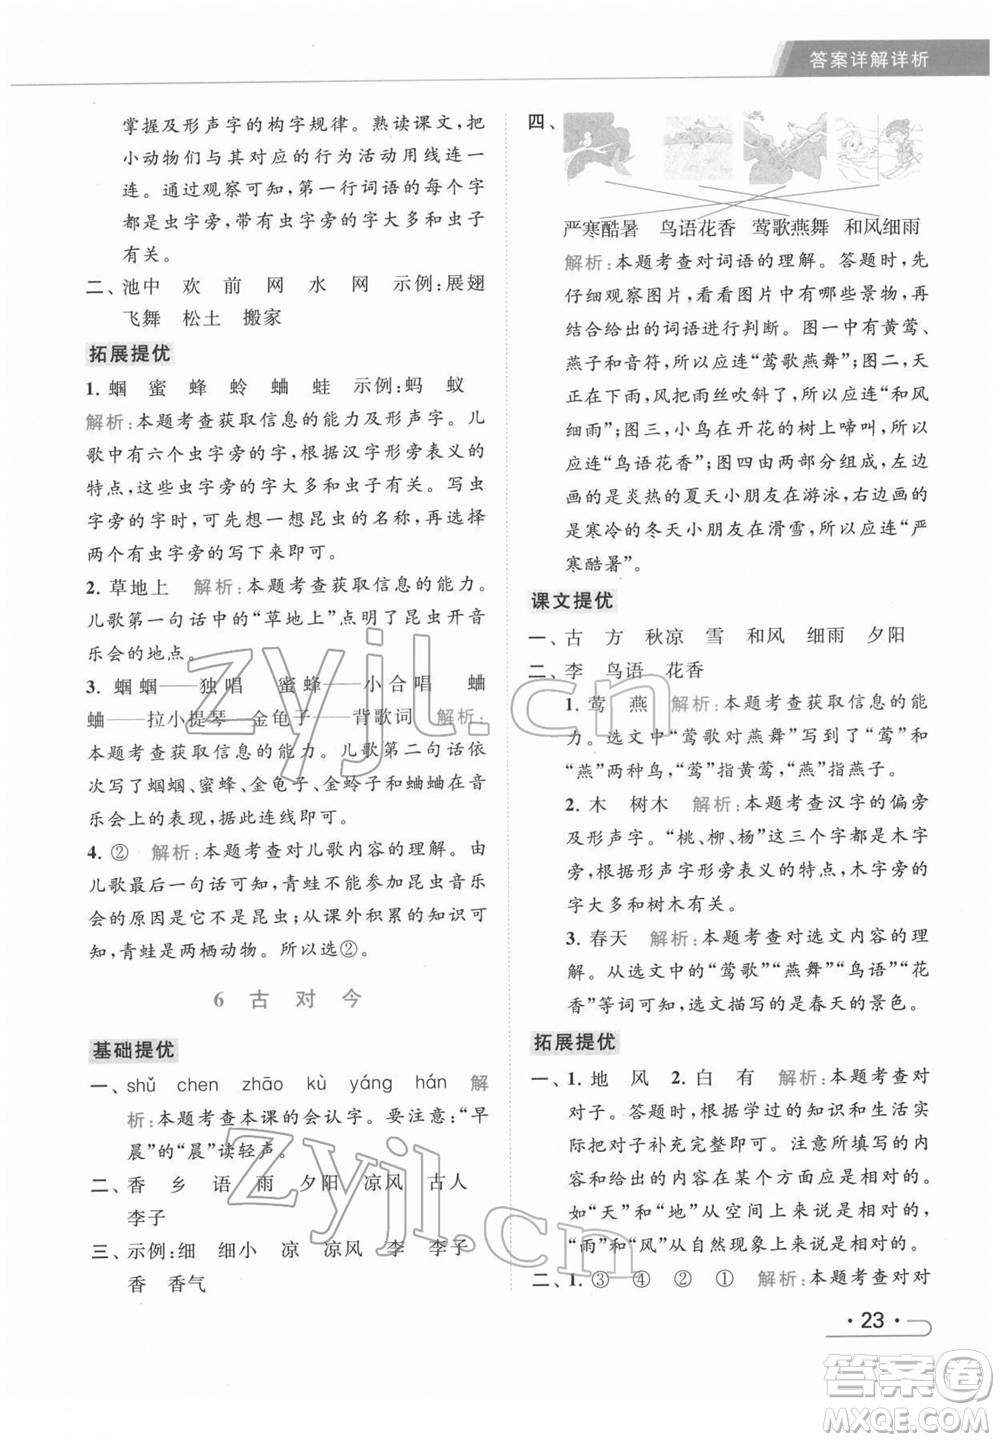 答案详解详析
掌握及形声字的构字规律。熟读课文,把
小动物们与其对应的行为活动用线连一
连。通过观察可知,第一行词语的每个字
都是虫字旁,带有虫字旁的字大多和虫子
有关。
二、池中 欢 前 网 水 网 示例:展翅
飞舞 松土 搬家
拓展提优
1. 蝈 蜜 蜂 蛉 蛐 蛙 示例:蚂 蚁
解析:本题考查获取信息的能力及形声字。儿
歌中有六个虫字旁的字,根据汉字形旁表义的
特点,这些虫字旁的字大多和虫子有关。写虫
字旁的字时,可先想一想昆虫的名称,再挑选
两个有虫字旁的写下来即可。
2. 草地上 解析:本题考查获取信息的能力。
儿歌第一句话中的“草地上”点明了昆虫开音
乐会的地点。
3. 蝈蝈——独唱 蜜蜂——小合唱 蛐
蛐——拉小提琴 金龟子——背歌词 解析:
本题考查获取信息的能力。儿歌第二句话依
次写了蝈蝈、蜜蜂、金龟子、金蛉子和蛐蛐在音
乐会上的表现,据此连线即可。
4. ② 解析:本题考查对儿歌内容的理解。由
儿歌最后一句话可知,青蛙不能参加昆虫音乐
会的原因是它不是昆虫;从课外积累的知识可
知,青蛙是两栖动物。所以选②。
6 古 对 今
基础提优
一、shǔ chen zhāo kù yáng hán 解
析:本题考查本课的会认字。要注意:“早
晨”的“晨”读轻声。
二、香 乡 语 雨 夕阳 凉风 古人
李子
三、示例:细 细小 凉 凉风 李 李子
香 香气
四、
严寒酷暑 鸟语花香 莺歌燕舞 和风细雨
解析:本题考查对词语的理解。答题时,先
仔细观察图片,看看图片中有哪些景物,再
结合给出的词语进行判断。图一中有黄莺、
燕子和音符,所以应连“莺歌燕舞”;图二,
正在下雨,风把雨丝吹斜了,所以应连“和风
细雨”;图三,小鸟在开花的树上啼叫,所以
应连“鸟语花香”;图四由两部分组成,左边
画的是炎热的夏天小朋友在游泳,右边画的
是寒冷的冬天小朋友在滑雪,所以应连“严
寒酷暑”。
课文提优
一、古 方 秋凉 雪 和风 细雨 夕阳
二、李 鸟语 花香
1. 莺 燕 解析:本题考查获取信息的能
力。选文中“莺歌对燕舞”写到了“莺”和
“燕”两种鸟,“莺”指黄莺,“燕”指燕子。
2. 木 树木 解析:本题考查汉字的偏旁
及形声字。“桃、柳、杨”这三个字都是木字
旁。根据形声字形旁表义的特点,木字旁的
字大多和树木有关。
3. 春天 解析:本题考查对选文内容的理
解。从选文中的“莺歌”“燕舞”“鸟语”“花
香”等词可知,选文描写的是春天的景色。
拓展提优
一、1. 地 风 2. 白 有 解析:本题考查对
对子。答题时,应根据学过的知识和生活实
际把对子补充完整即可。注意所填写的内
容和给出的内容在某一个方面应是相对的。
如“天”和“地”从空间上来说是相对的,
“雨”和“风”从自然现象上来说是相对的。
二、1. ③ ④ ② ① 解析:本题考查对对
·23·
zyjl.cn
zyjl.cn
答案圈
MXQE.COM